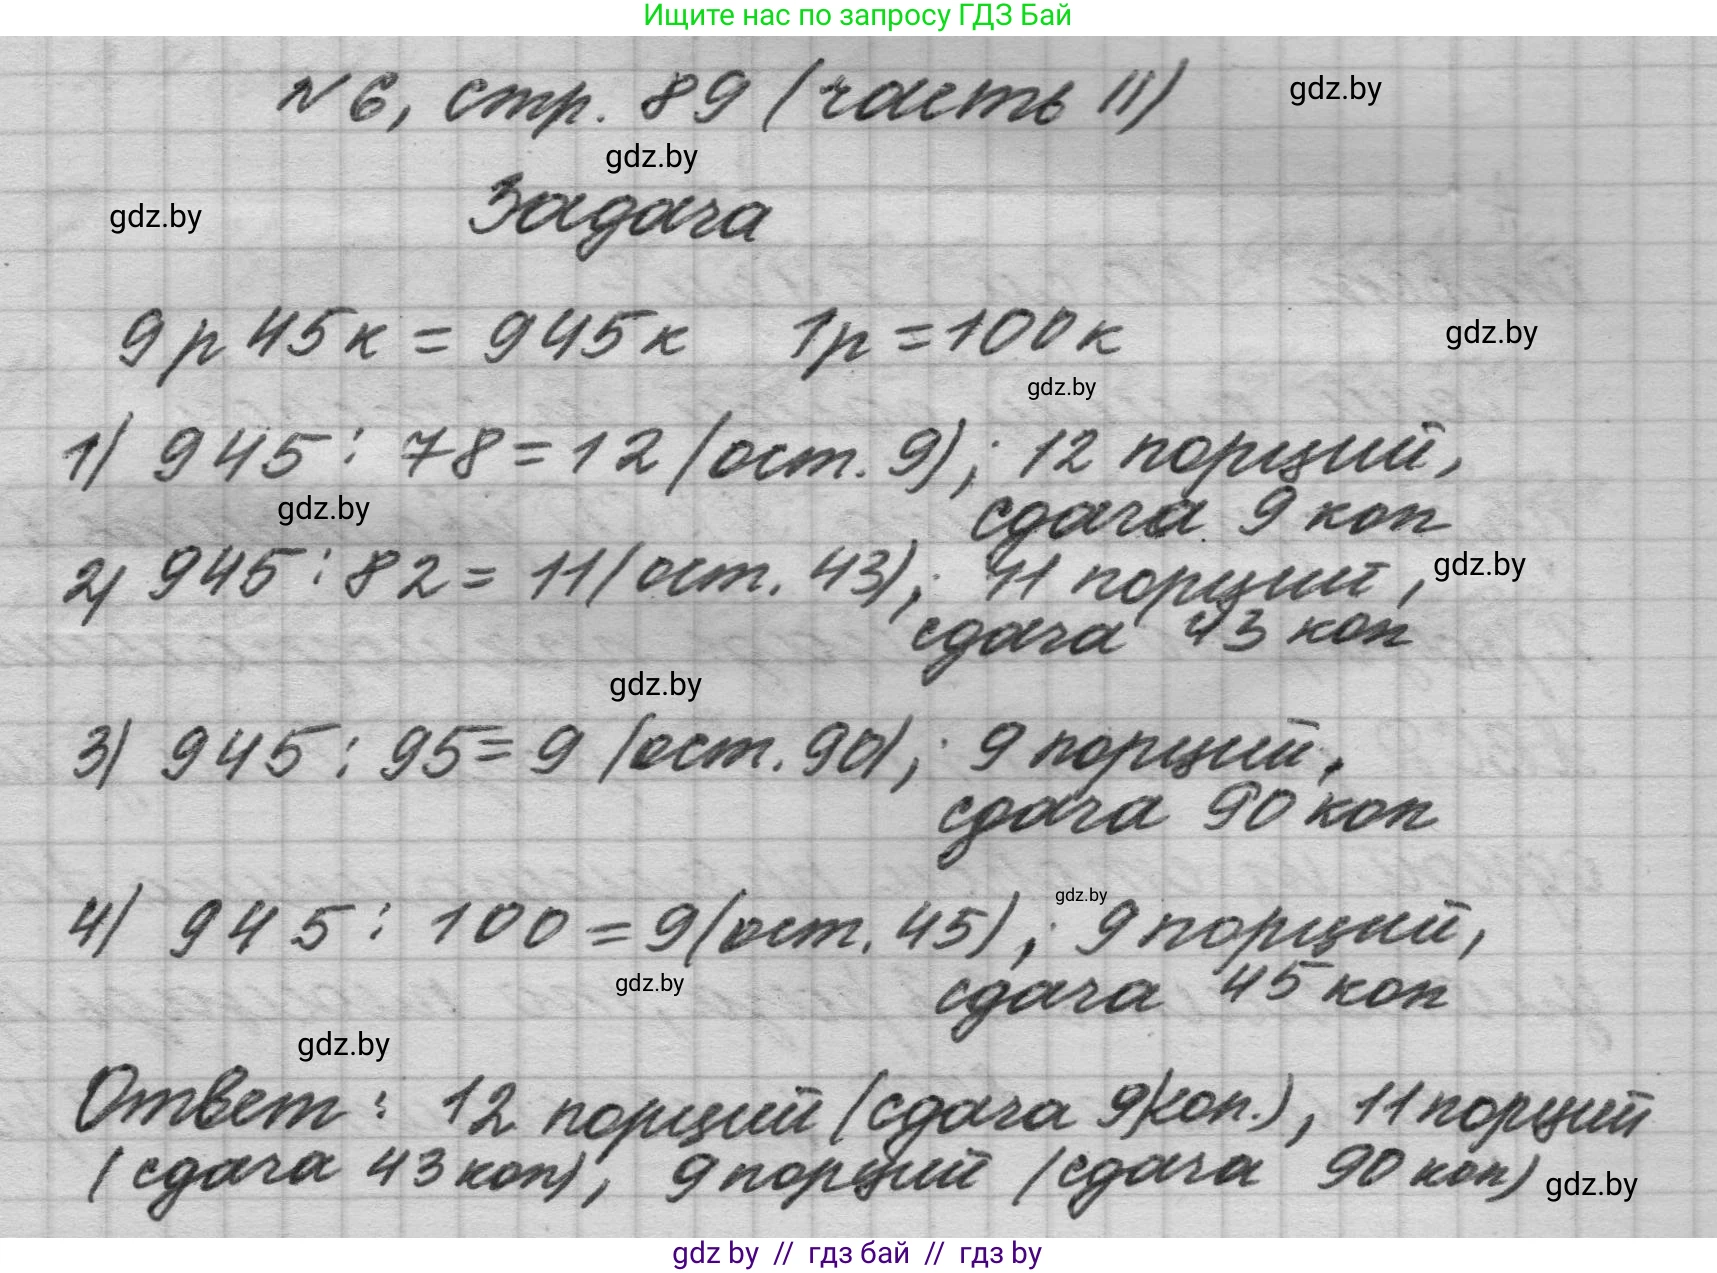 Ищите нас по запросу ГДЗ Бай
№6, стр. 89 (часть II)
gdz.by
gdz.by
gdz.by
Задача
9р 45к = 945к 1р = 100к
gdz.by
gdz.by
1) 945 : 78 = 12 (ост. 9); 12 порций,
gdz.by
сдача 9 коп
2) 945 : 82 = 11 (ост. 43); 11 порций,
gdz.by
сдача 43 коп
gdz.by
3) 945 : 95 = 9 (ост. 90); 9 порций,
сдача 90 коп
gdz.by
4) 945 : 100 = 9 (ост. 45); 9 порций,
gdz.by
сдача 45 коп
gdz.by
Ответ: 12 порций (сдача 9 коп.), 11 порций
(сдача 43 коп), 9 порций (сдача 90 коп)
gdz.by
gdz by // гдз бай // гдз by